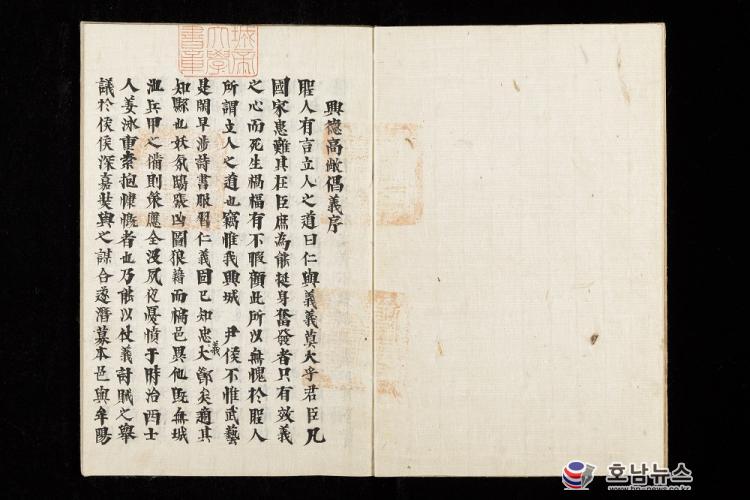 城帝
大學
書章
興德高敞倡義序
聖人有言立人之道曰仁與義義莫大乎君臣凡
國家患難其在臣庶為能挺身奮發者只有效義
之心而死生禍福有不暇顧此所以無愧於聖人
所謂立人之道也竊惟我興城 尹侯不惟武藝
是閑早涉詩書服習仁義固已知忠義大矣適其
知縣也妖氛張凶圖狼藉而邑異他既無城
池兵甲之備則策應全沒夙夜憂憤于時治西士
人姜泳重素抱慷慨者也乃能以仗義討賊之舉
議於侯侯深嘉奘與之謀合遂潛募本邑與牟陽
호남뉴스